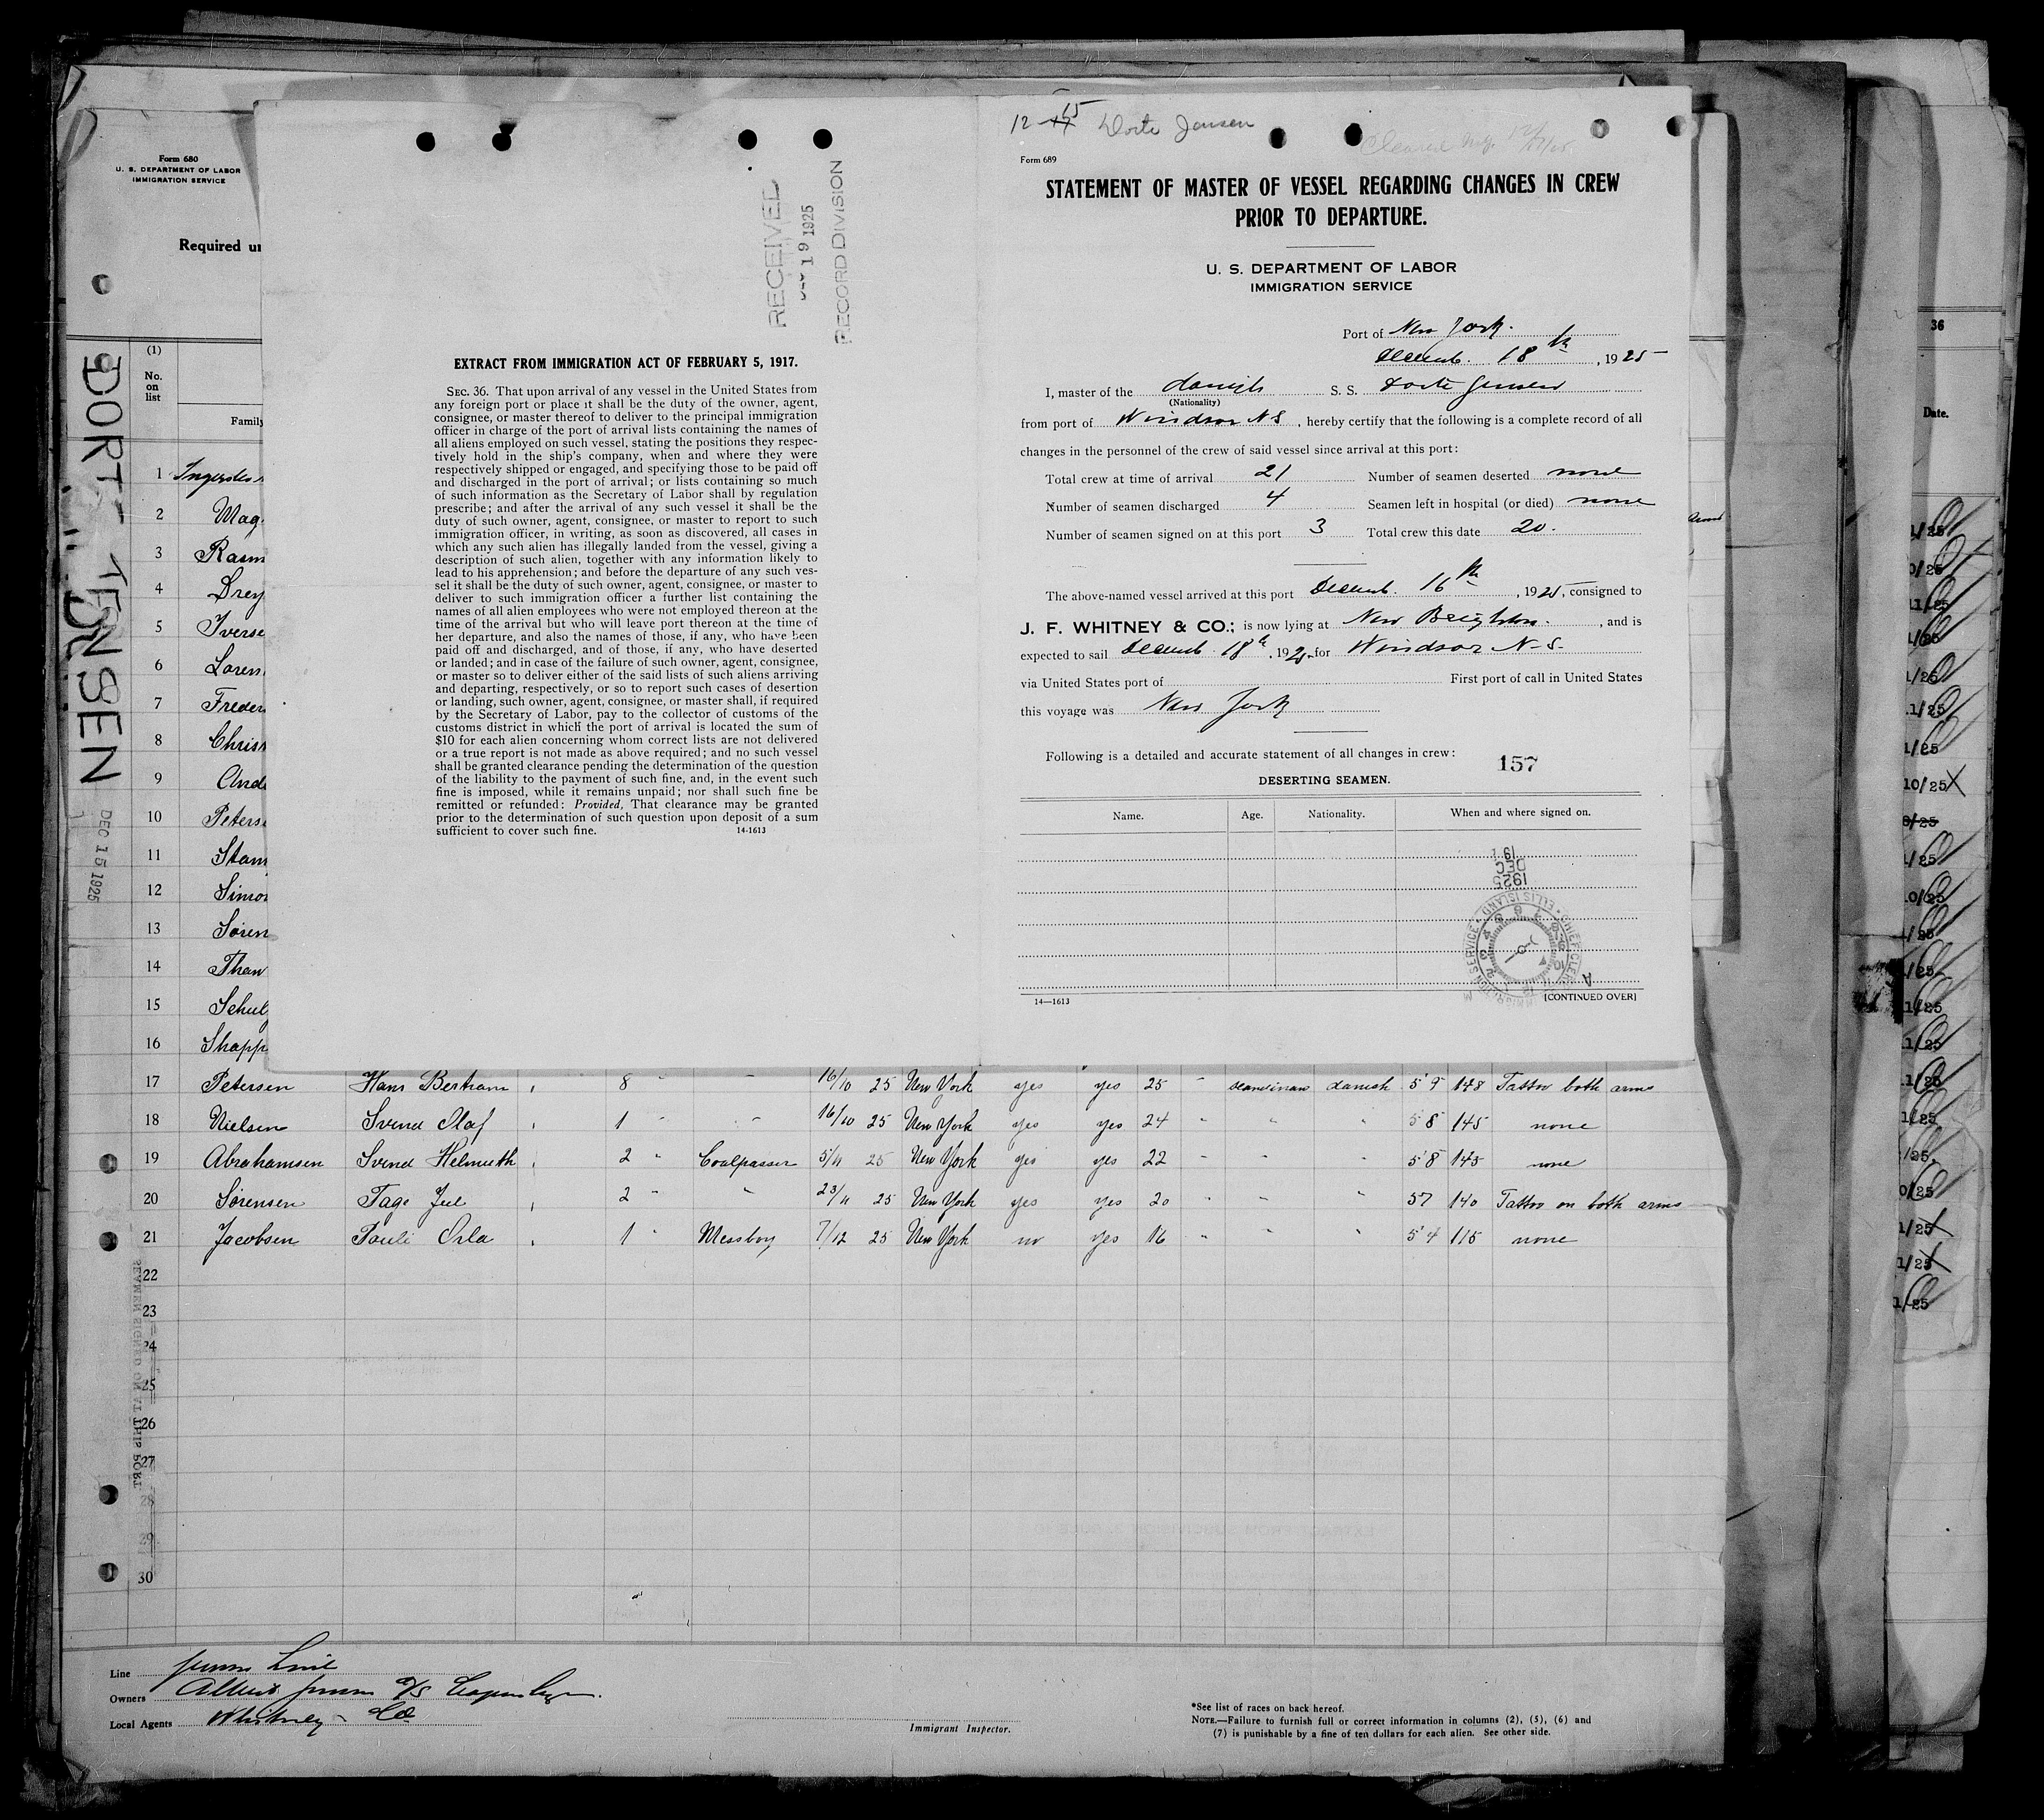 12-17 15 Dorte Jensen
Cleared
Form 680
U. S. DEPARTMENT OF LABOR
IMMIGRATION SERVICE
Required un
(1)
No.
on
list
Family
DORTE JENSEN
DEC 15 1925
SEAMEN SIGNED ON AT THIS PORT
RECEIVED
DEC 19 1925
RECORD DIVISION
EXTRACT FROM IMMIGRATION ACT OF FEBRUARY 5, 1917.
SEC. 36. That upon arrival of any vessel in the United States from
any foreign port or place it shall be the duty of the owner, agent,
consignee, or master thereof to deliver to the principal immigration
officer in charge of the port of arrival lists containing the names of
all aliens employed on such vessel, stating the positions they respec-
tively hold in the ship's company, when and where they were
respectively shipped or engaged, and specifying those to be paid off
and discharged in the port of arrival; or lists containing so much
of such information as the Secretary of Labor shall by regulation
prescribe; and after the arrival of any such vessel it shall be the
duty of such owner, agent, consignee, or master to report to such
immigration officer, in writing, as soon as discovered, all cases in
which any such alien has illegally landed from the vessel, giving a
description of such alien, together with any information likely to
lead to his apprehension; and before the departure of any such ves-
sel it shall be the duty of such owner, agent, consignee, or master to
deliver to such immigration officer a further list containing the
names of all alien employees who were not employed thereon at the
time of the arrival but who will leave port thereon at the time of
her departure, and also the names of those, if any, who have been
paid off and discharged, and of those, if any, who have deserted
or landed; and in case of the failure of such owner, agent, consignee,
or master so to deliver either of the said lists of such aliens arriving
and departing, respectively, or so to report such cases of desertion
or landing, such owner, agent, consignee, or master shall, if required
by the Secretary of Labor, pay to the collector of customs of the
customs district in which the port of arrival is located the sum of
$10 for each alien concerning whom correct lists are not delivered
or a true report is not made as above required; and no such vessel
shall be granted clearance pending the determination of the question
of the liability to the payment of such fine, and, in the event such
fine is imposed, while it remains unpaid; nor shall such fine be
remitted or refunded: Provided, That clearance may be granted
prior to the determination of such question upon deposit of a sum
sufficient to cover such fine. 14-1613
Form 689
STATEMENT OF MASTER OF VESSEL REGARDING CHANGES IN CREW
PRIOR TO DEPARTURE.
U. S. DEPARTMENT OF LABOR
IMMIGRATION SERVICE
Port of New York.
Decemb. 18th, 1925
I, master of the danish S. S. Dorte Jensen
(Nationality)
from port of Windsor N.S, hereby certify that the following is a complete record of all
changes in the personnel of the crew of said vessel since arrival at this port:
Total crew at time of arrival 21 Number of seamen deserted none
Number of seamen discharged 4 Seamen left in hospital (or died) none
Number of seamen signed on at this port 3 Total crew this date 20.
The above-named vessel arrived at this port Decemb. 16th, 1925, consigned to
J. F. WHITNEY & CO.; is now lying at New Brighton., and is
expected to sail Decemb 18th, 1925 for Windsor N-S.
via United States port of First port of call in United States
this voyage was New York
Following is a detailed and accurate statement of all changes in crew:
157
DESERTING SEAMEN.
Name. Age. Nationality. When and where signed on.
1925
DEC
19
IMMIGRATION SERVICE · ELLIS ISLAND · CHIEF CLERK
14—1613 [CONTINUED OVER]
1 Ingersles
2 Mag
3 Rasm
4 Drey
5 Iverse
6 Loren
7 Freder
8 Chris
9 Ande
10 Peters
11 Stam
12 Simo
13 Soren
14 Than
15 Schul
16 Shapp
17 Petersen Hans Bertram " 8 " " 16/10 25 New York yes yes 25 " scandinav danish 5'9 148 Tattoo both arms
18 Nielsen Svend Olaf " 1 " " 16/10 25 New York yes yes 24 " " " 5 8 145 none
19 Abrahamsen Svend Helmuth " 2 " Coalpasser 5/11 25 New York yes yes 22 " " " 5'8 145 none
20 Sørensen Tage Juel " 2 " " 23/11 25 New York yes yes 20 " " " 57 140 Tattoo on both arms
21 Jacobsen Pauli Orla " 1 " Messboy 7/12 25 New York no yes 16 " " " 5'4 115 none
22
23
24
25
26
27
28
29
30
Line Jensen Line
Owners Albert Jensen A/S Copenhagen.
Local Agents Whitney & Co
Immigrant Inspector.
*See list of races on back hereof.
NOTE.—Failure to furnish full or correct information in columns (2), (5), (6) and
(7) is punishable by a fine of ten dollars for each alien. See other side.
36
Date.
1/25
0/25
11/25
1/25
1/25
11/25
1/25
10/25
0/25
1/25
10/25
1/25
1/25
11/25
11/25
11/25
1/25
1/25
0/25
1/25
1/25
1/25